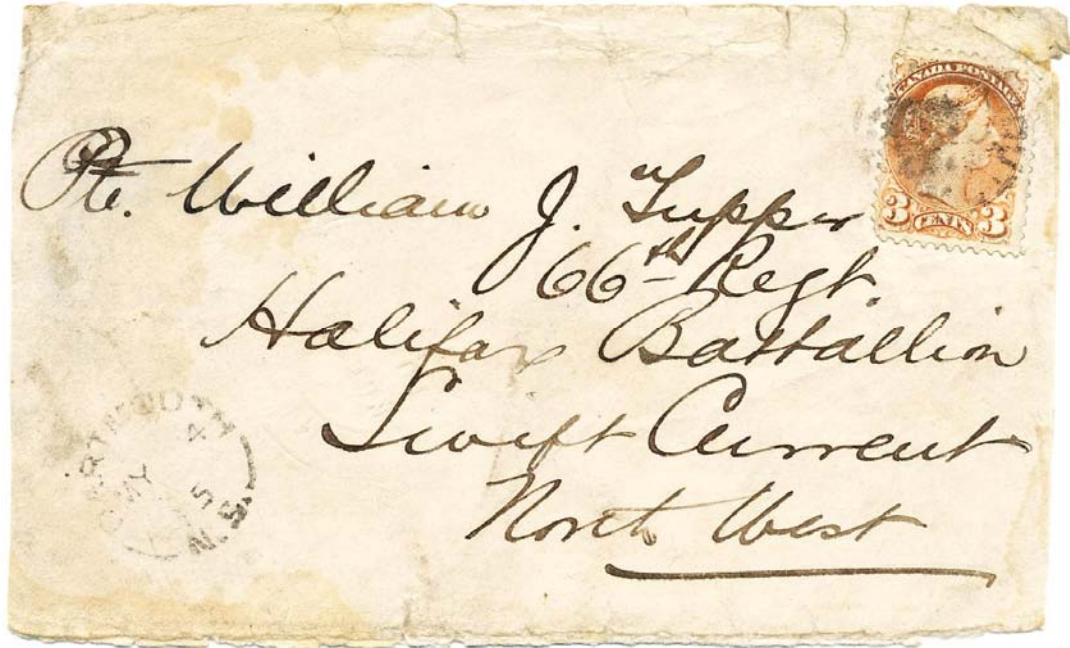 CANADA POSTAGE
3 CENTS 3
Pte. William J. Tupper
66th Regt.
Halifax Battallion
Swift Current
North West
DARTMOUTH
MY 4
5
N.S.